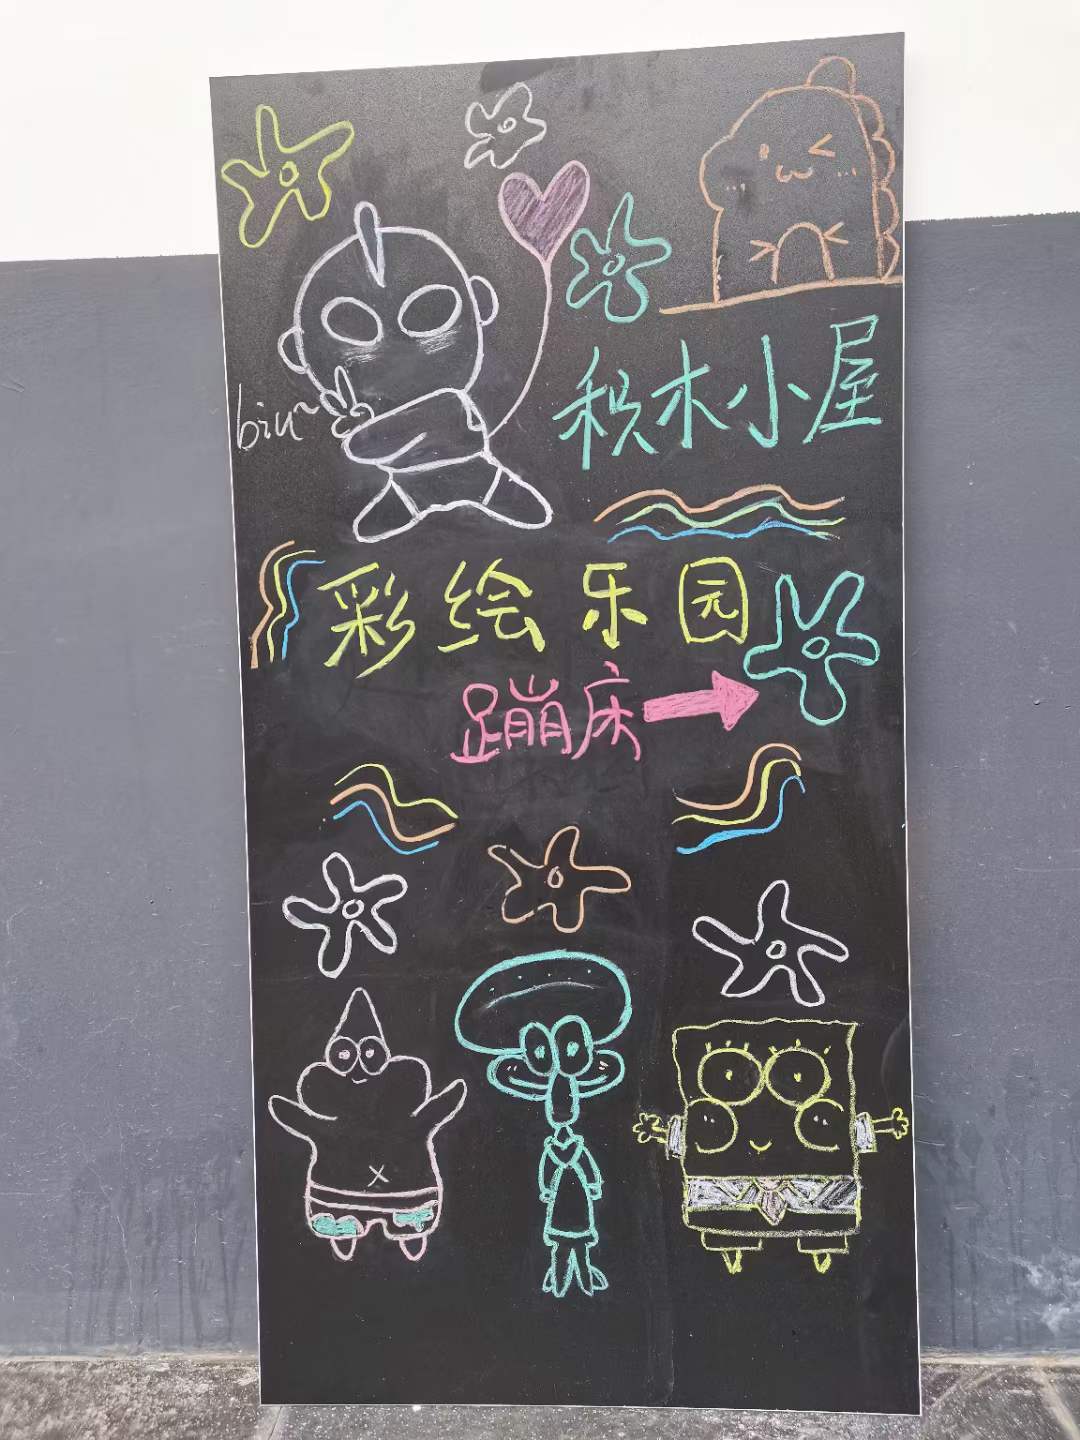 biu~
积木小屋
彩绘乐园
蹦床→